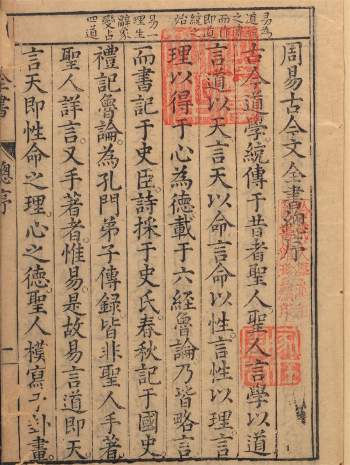 易為
道
之
而即
道即
統之
始
易一
理生
辭象
變占
四道
周易古今文全書總序
古今道學統傳于昔者聖人聖人言學以道
言道以天言天以命言命以性言性以理言
理以得于心為德載于六經魯論乃皆略言
而書記于史臣詩採于史氏春秋記于國史
禮記魯論為孔門弟子傳録皆非聖人手著
聖人詳言又手著者惟易是故易言道即天
言天即性命之理心之德聖人模寫于卦畫
全書
總序
一